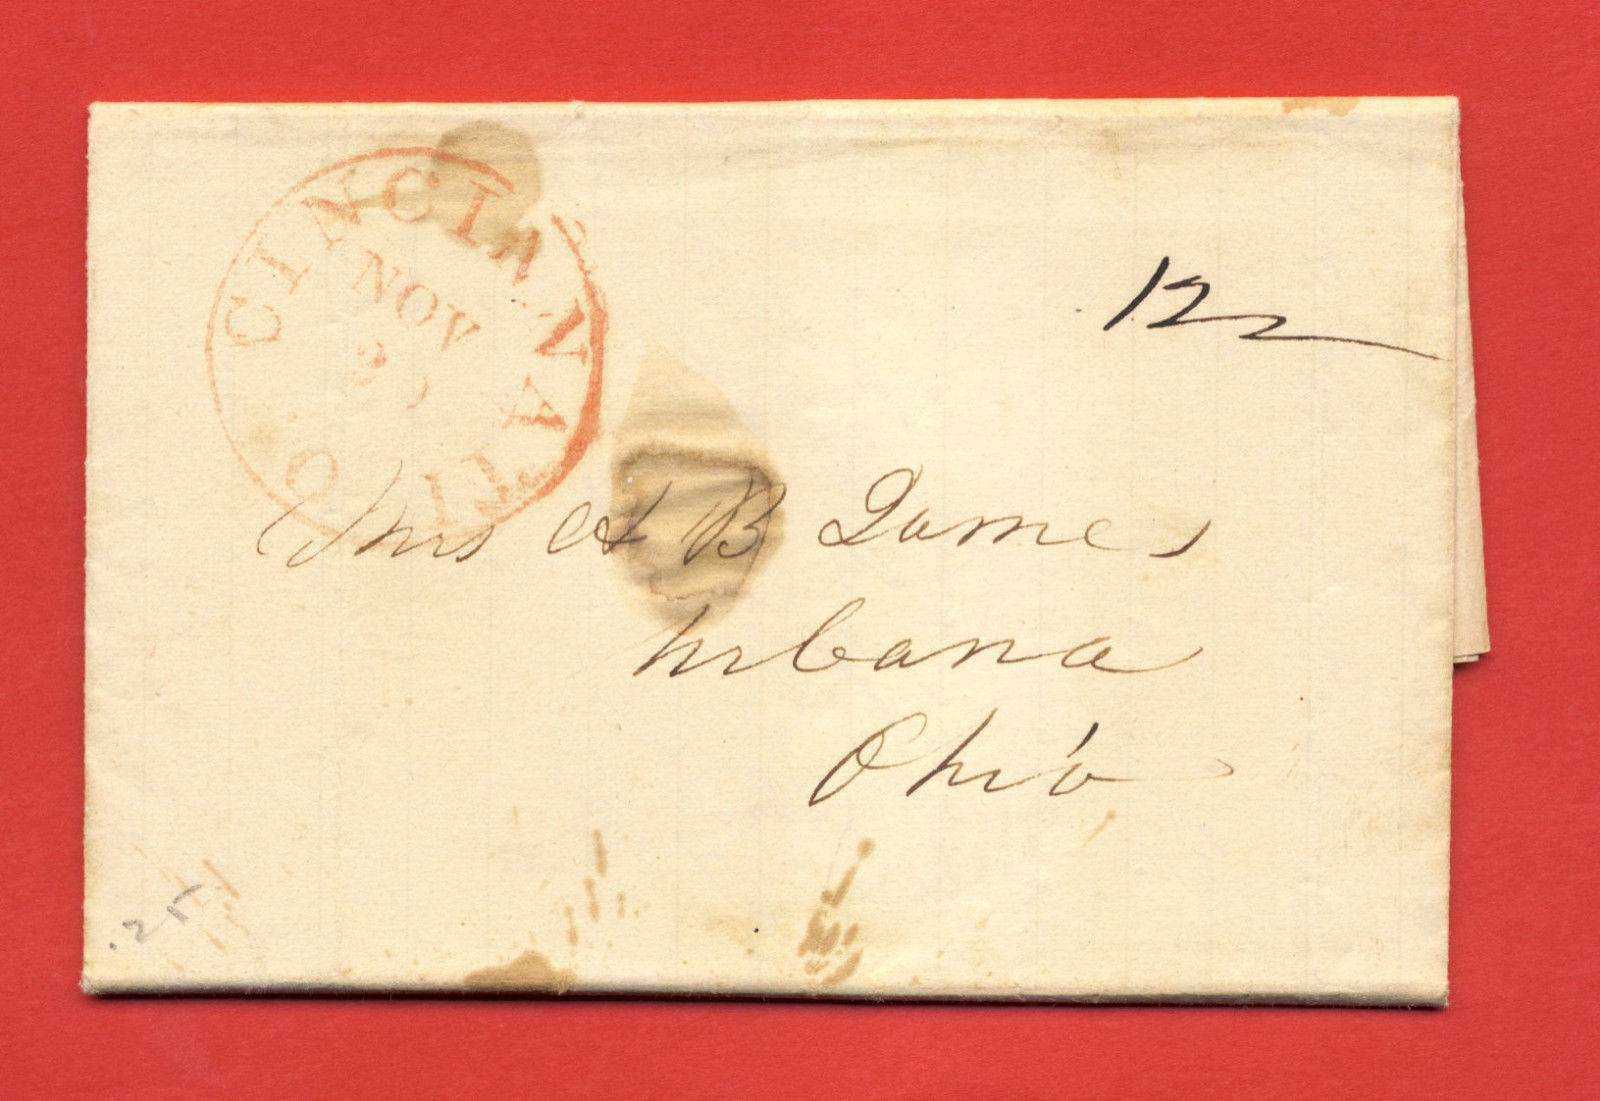 CINCINNATI O.
NOV
12
Mrs A B James
Urbana
Ohio
.25